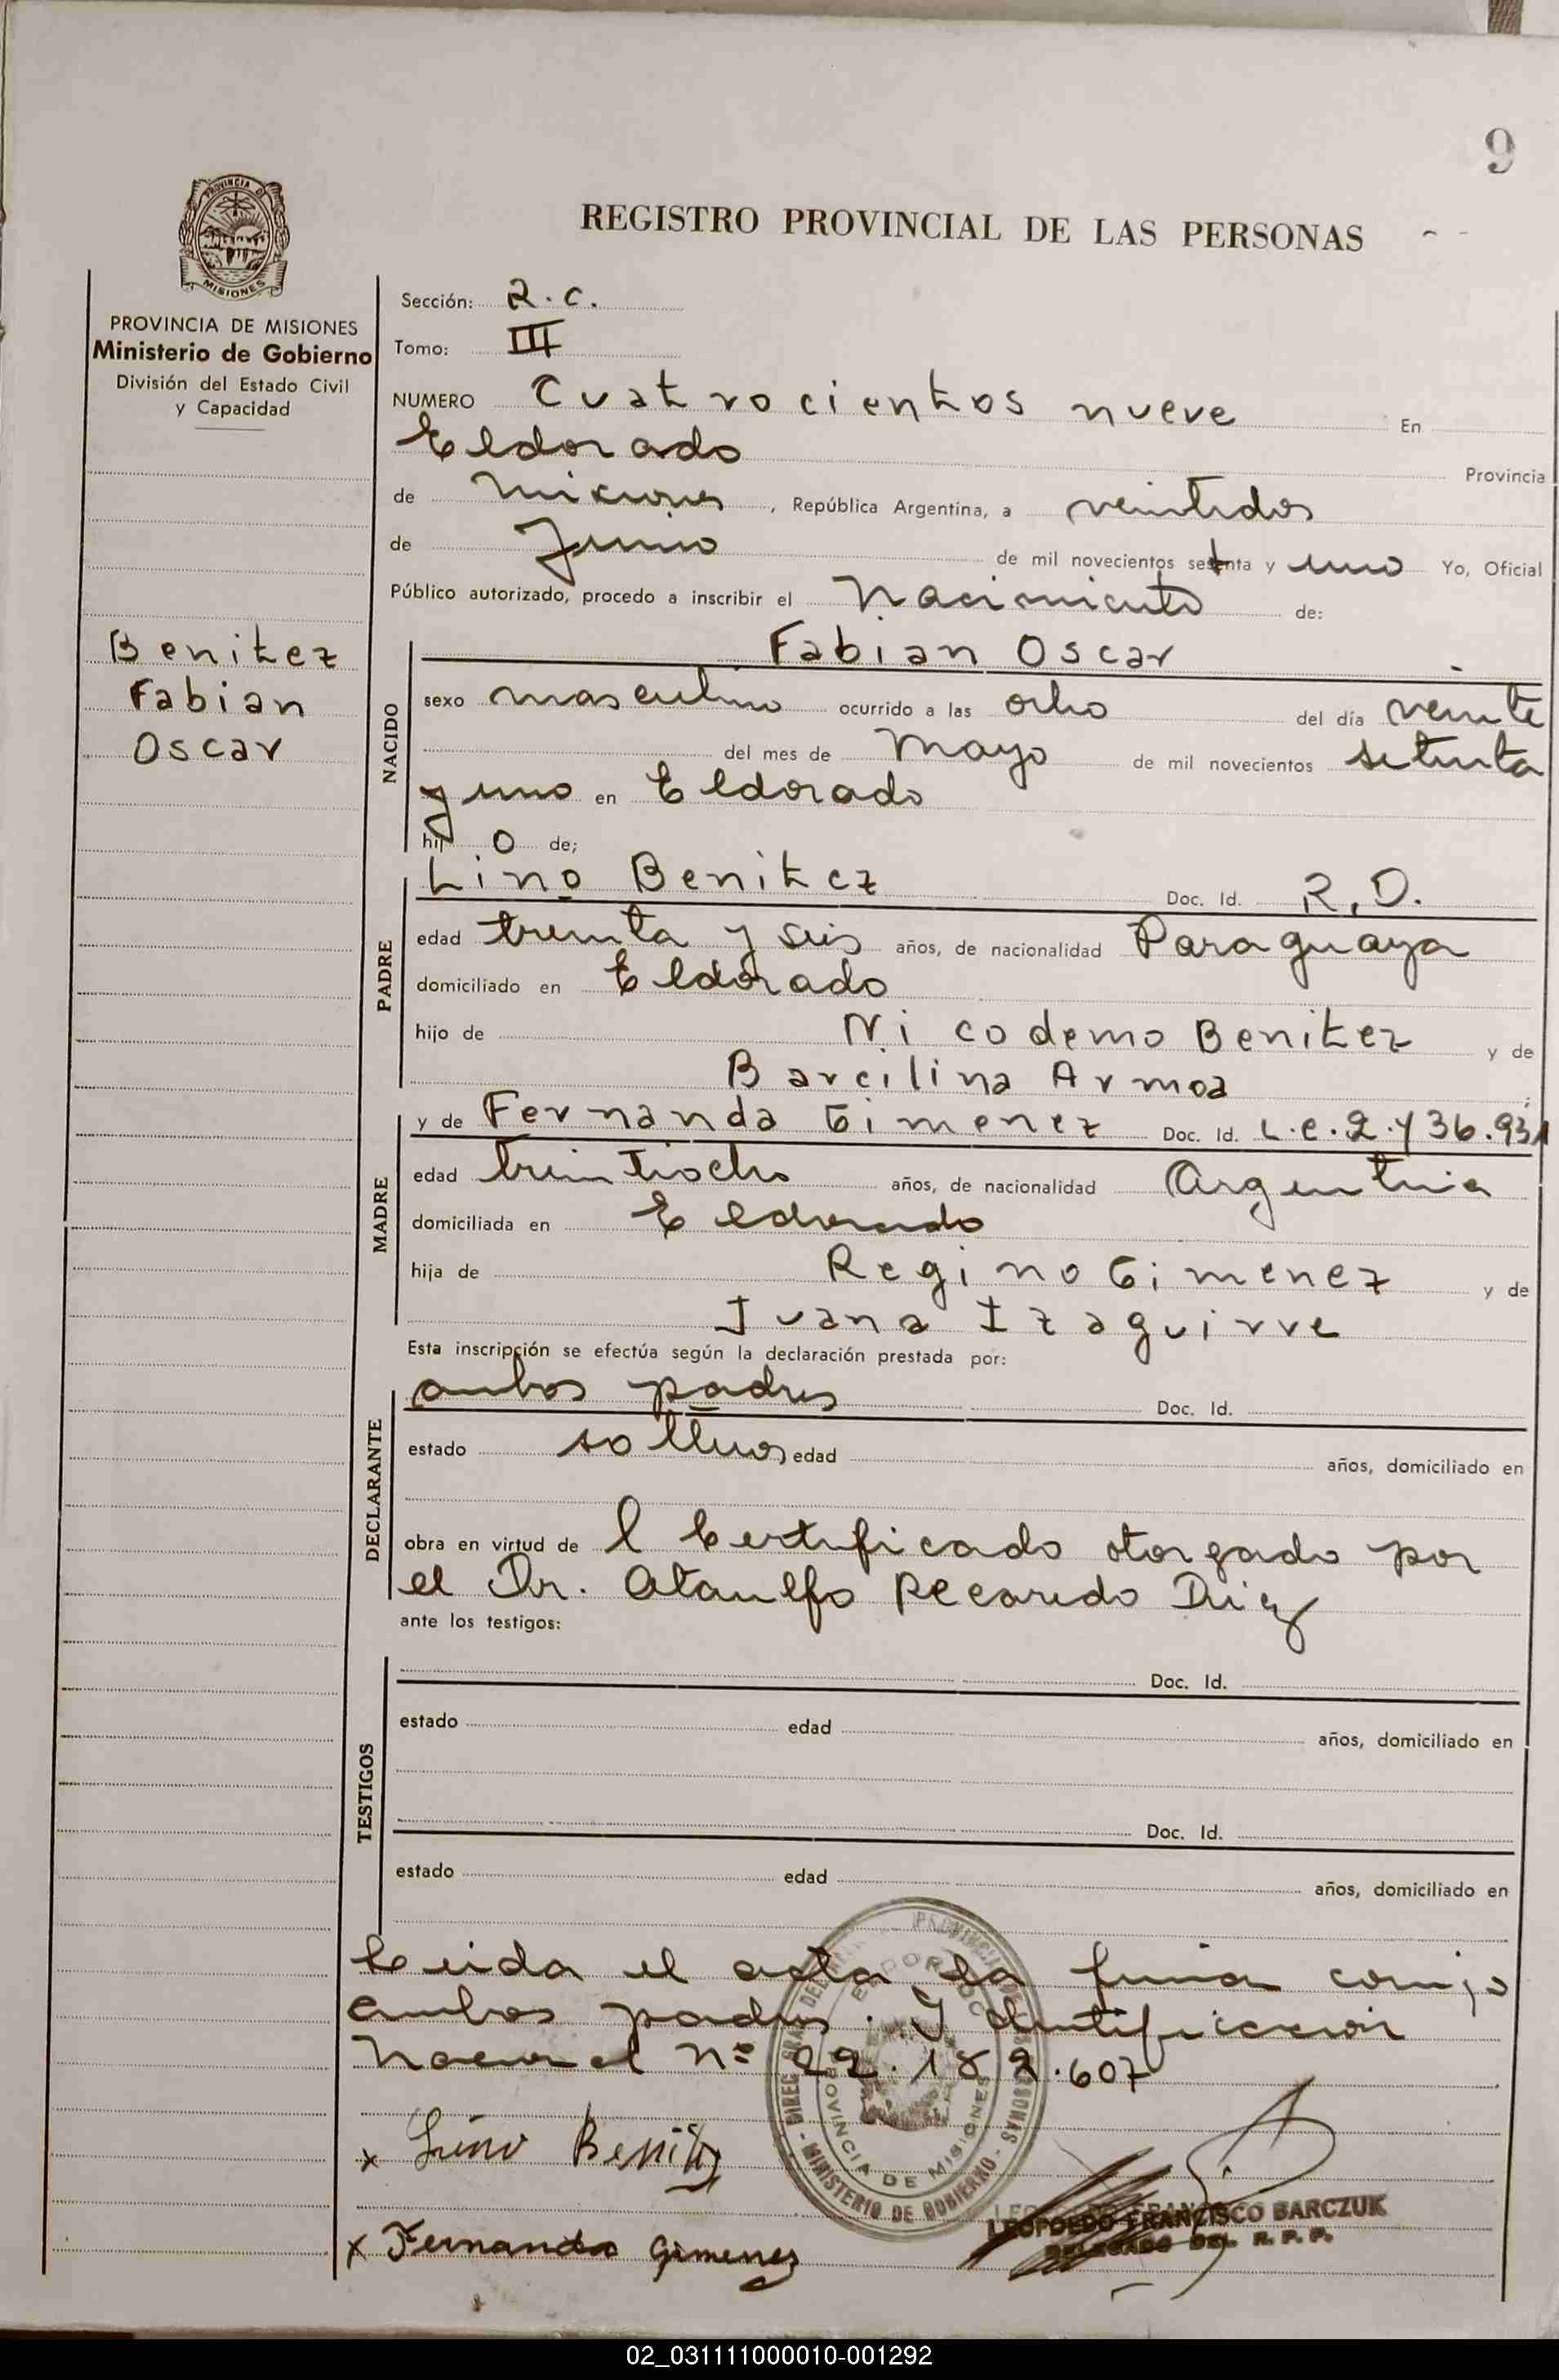 9
REGISTRO PROVINCIAL DE LAS PERSONAS
PROVINCIA DE MISIONES
Ministerio de Gobierno
División del Estado Civil
y Capacidad
Benitez
Fabian
Oscar
Sección: R.C.
Tomo: III
NUMERO Cuatrocientos nueve En
Eldorado Provincia
de Misiones, República Argentina, a veintidos
de Junio de mil novecientos setenta y uno Yo, Oficial
Público autorizado, procedo a inscribir el Nacimiento de:
NACIDO
Fabian Oscar
sexo masculino ocurrido a las ocho del día veinte
del mes de Mayo de mil novecientos setenta
y uno en Eldorado
hijo de;
PADRE
Lino Benitez Doc. Id. R.D.
edad treinta y seis años, de nacionalidad Paraguaya
domiciliado en Eldorado
hijo de Nicodemo Benitez y de
Barcilina Armoa
MADRE
y de Fernanda Gimenez Doc. Id. L.C.2.436.931
edad treintiocho años, de nacionalidad Argentina
domiciliada en Eldorado
hija de Regino Gimenez y de
Juana Izaguirre
Esta inscripción se efectúa según la declaración prestada por:
DECLARANTE
ambos padres Doc. Id.
estado solteros edad años, domiciliado en
obra en virtud de l Certificado otorgado por
el Dr. Ataulfo Recaredo Diez
ante los testigos:
TESTIGOS
Doc. Id.
estado edad años, domiciliado en
Doc. Id.
estado edad años, domiciliado en
Leida el acta la firma conmigo
ambos padres. Identificacion
Nacional Nº 22.182.607
x Lino Benitez
x Fernanda Gimenez
LEOPOLDO FRANCISCO BARCZUK
DELEGADO DEL R. P. P.
PROVINCIA DE MISIONES
MINISTERIO DE GOBIERNO
02_031111000010-001292